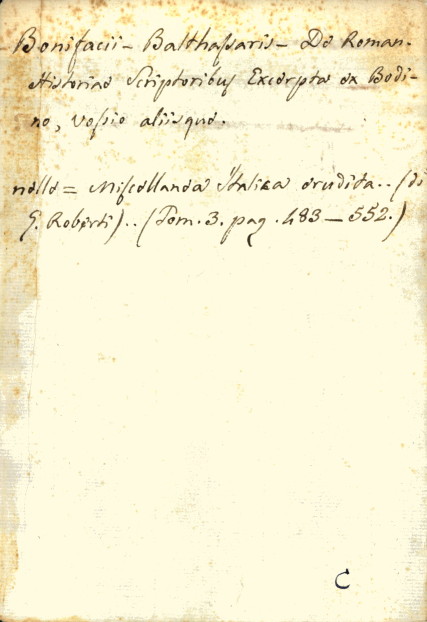 Bonifacii - Balthaſsaris - De Roman.
Historiae Scriptoribus Excerpta ex Bodi-
no, Voſsio aliisque.
nelle = Miſcellanea Italica erudita .. (di
G. Roberti) .. (Tom. 3. pag. 483 - 552.)
C